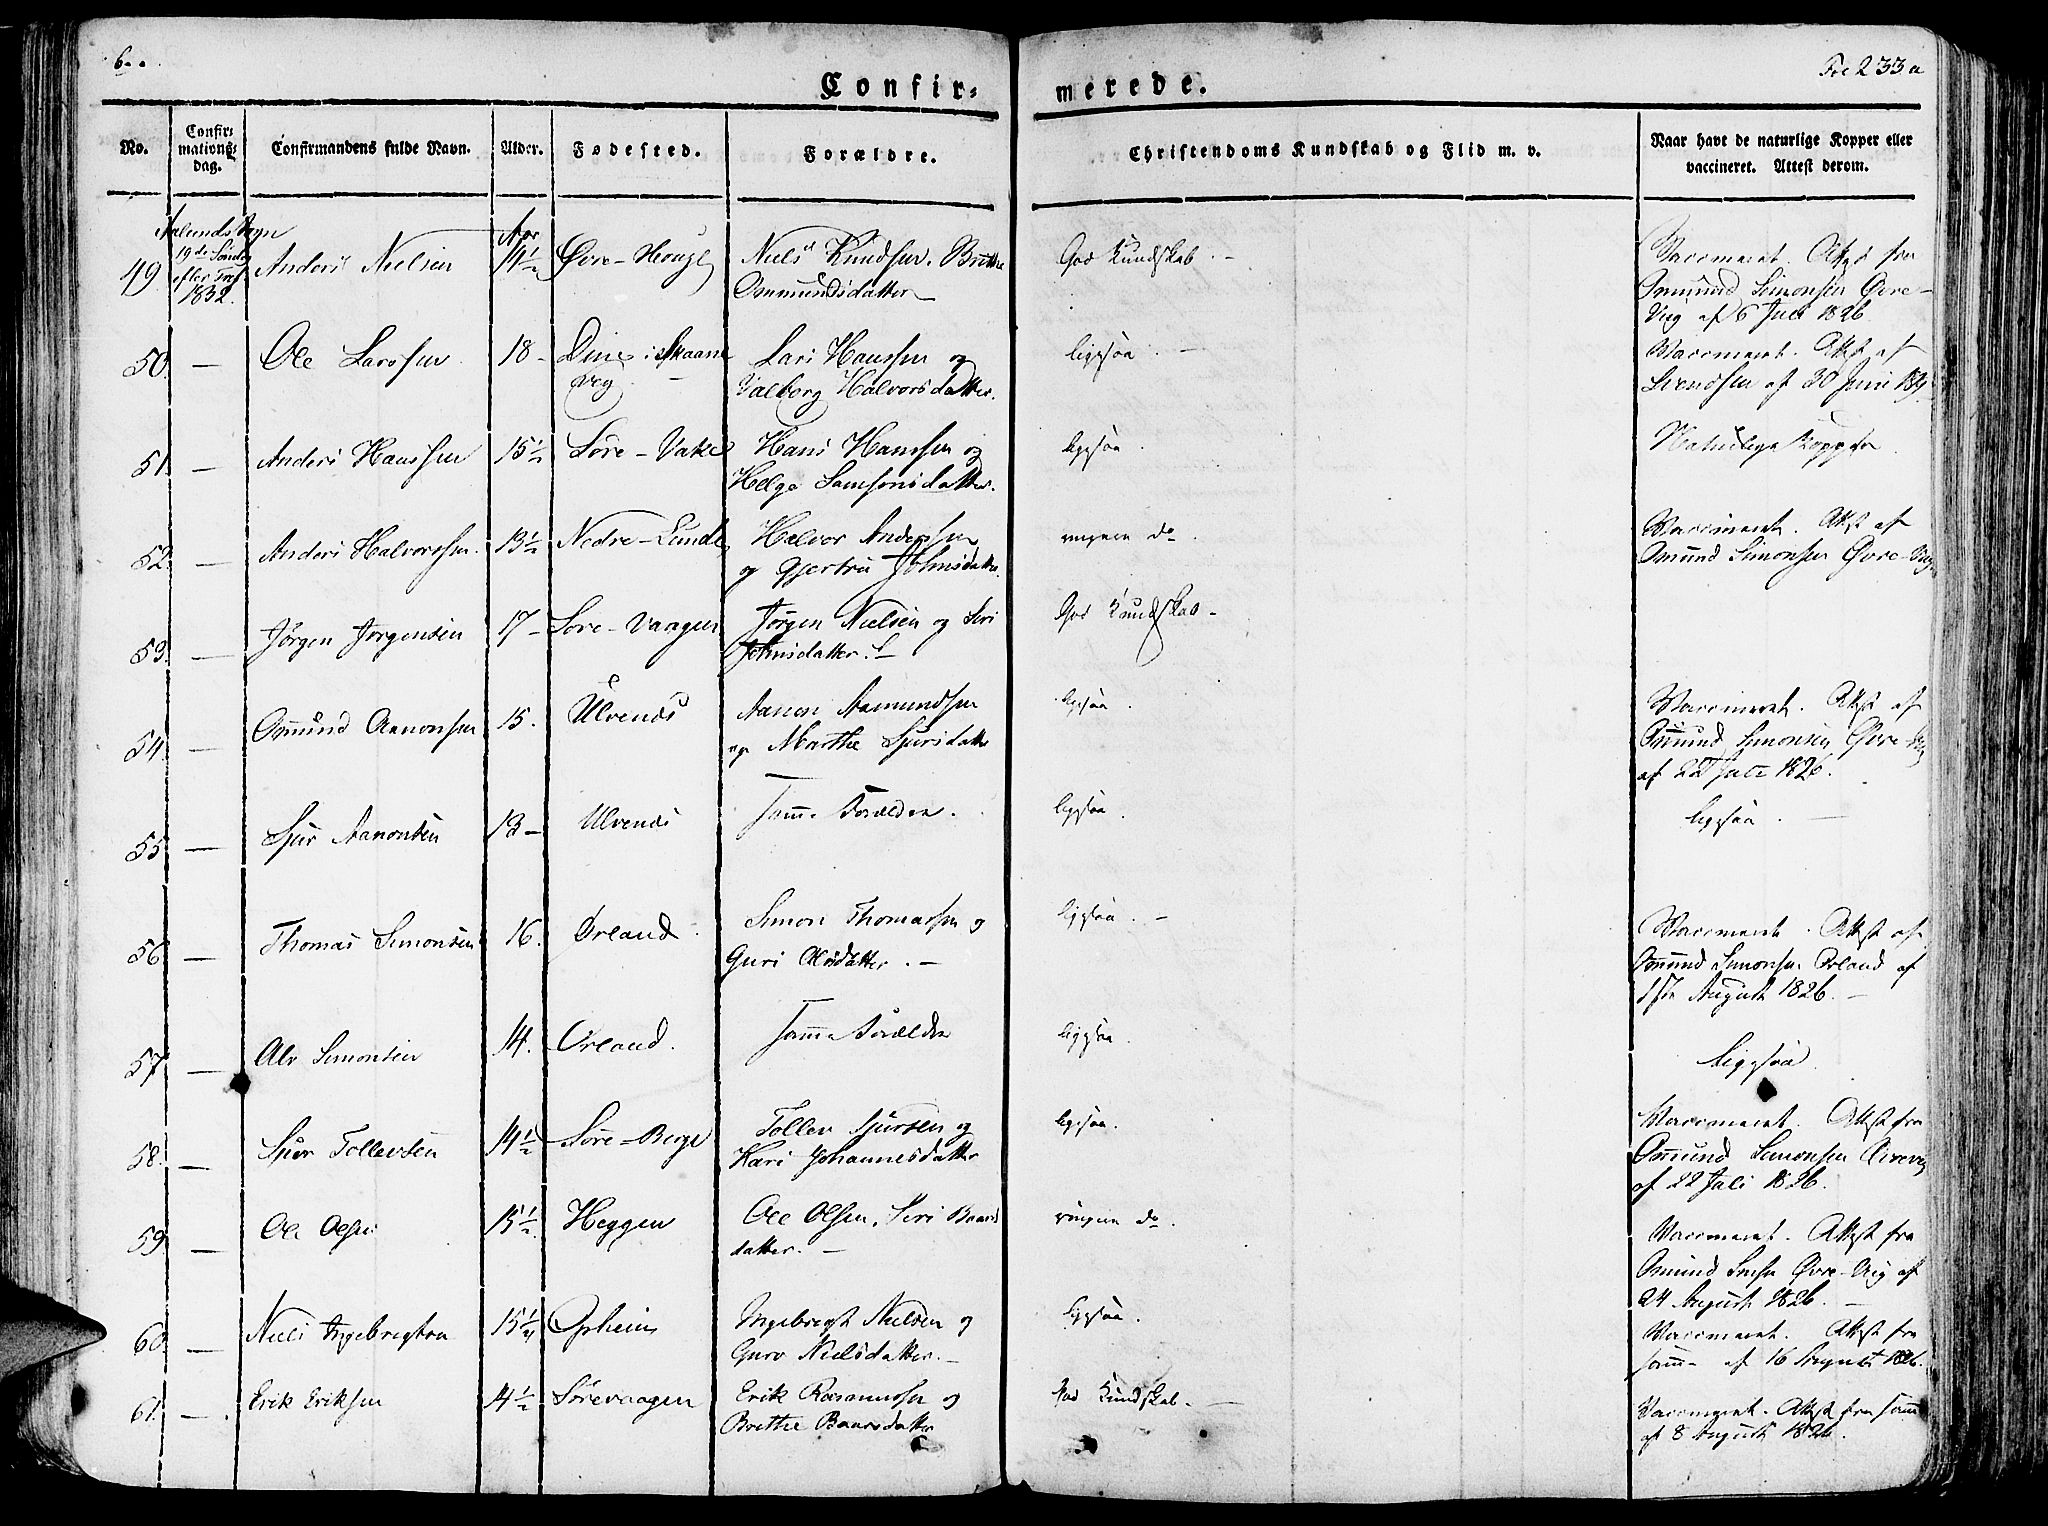 Fol 233a
Confir-
merede.
No.
Confir-
mations-
dag.
Confirmandens fulde Navn.
Alder.
Fødested.
Forældre.
Christendoms Kundskab og Flid m. v.
Naar havt de naturlige Kopper eller
vaccineret. Attest derom.
19de Sønd.
efter Tref.
1832.
Aar
49 Anders Nielsen 14½ Øvre-Houge Niels Knudsen. Brithe
Ommundsdatter
God Kundskab.
Vaccineret. Attest fra
Omund Simonsen Øvre-
Vig af 6 Juli 1826
50. — Ole Larssen 18 Lars Hanssen og
Valborg Halvorsdatter.
ligesaa.
Vaccineret. Attest af
Svendsen af 30 Juni
51. — Anders Hanssen 15½ Søre-Vake Hans Hanssen og
Helga Samsonsdatter.
ligesaa.
Naturlige Kopper.
52. — Anders Halvorssen. 13½ Nedre-Lunde Halvor Anderssen
og Gjertru Johnsdatter.
ringere do.
Vaccineret. Attest af
Omund Simonsen Øvre-Vig
53. — Jörgen Jorgensen 17 — Søre-Vaagen Jörgen Nielsen og Siri
Johnsdatter.
God Kundskab.
54. — Omund Aanonsen 15. Ulvenes Aanon Aamundsen
og Marthe Sjursdatter
ligesaa.
Vaccineret. Attest af
Omund Simonsen Øvre-Vig
af 22 Juli 1826.
55 — Sjur Aanonsen 13 — Ulvenes Samme Forældre.
ligesaa.
ligesaa.
56. — Thomas Simonsen 16. Ørland. Simon Thomassen og
Guri Olsdatter. —
ligesaa. —
Vaccineret. Attest af
Omund Simonsen Ørland af
August 1826. —
57 — Simonsen 14. Ørland. Samme Forældre
ligesaa.
Ligesaa.
58. — Sjur Tollevsen 14½ Søre-Berge Tollev Sjursen og
Kari Johannesdatter
ligesaa.
Vaccineret. Attest fra
Omund Simonsen Øvrevig
af 22 Juli 1826.
59 — Ole Olsen 15½ Heggen Ole Olsen, Siri Baards
datter. —
ringere do.
Vaccineret. Attest fra
Omund Øvre-Vig af
24 August 1826. —
60. — Niels Ingebregtsen 15½ Opheim Ingebregt Nielsen og
Guro Nielsdatter. —
ligesaa.
Vaccineret. Attest fra
samme af 16 August 1826.
61. — Erik Eriksen 14½ Sørevaagen Erik Rasmussen og
Brithe Baarsdatter
God Kundskab. —
Vaccineret. Attest fra samme
af 8 August 1826.